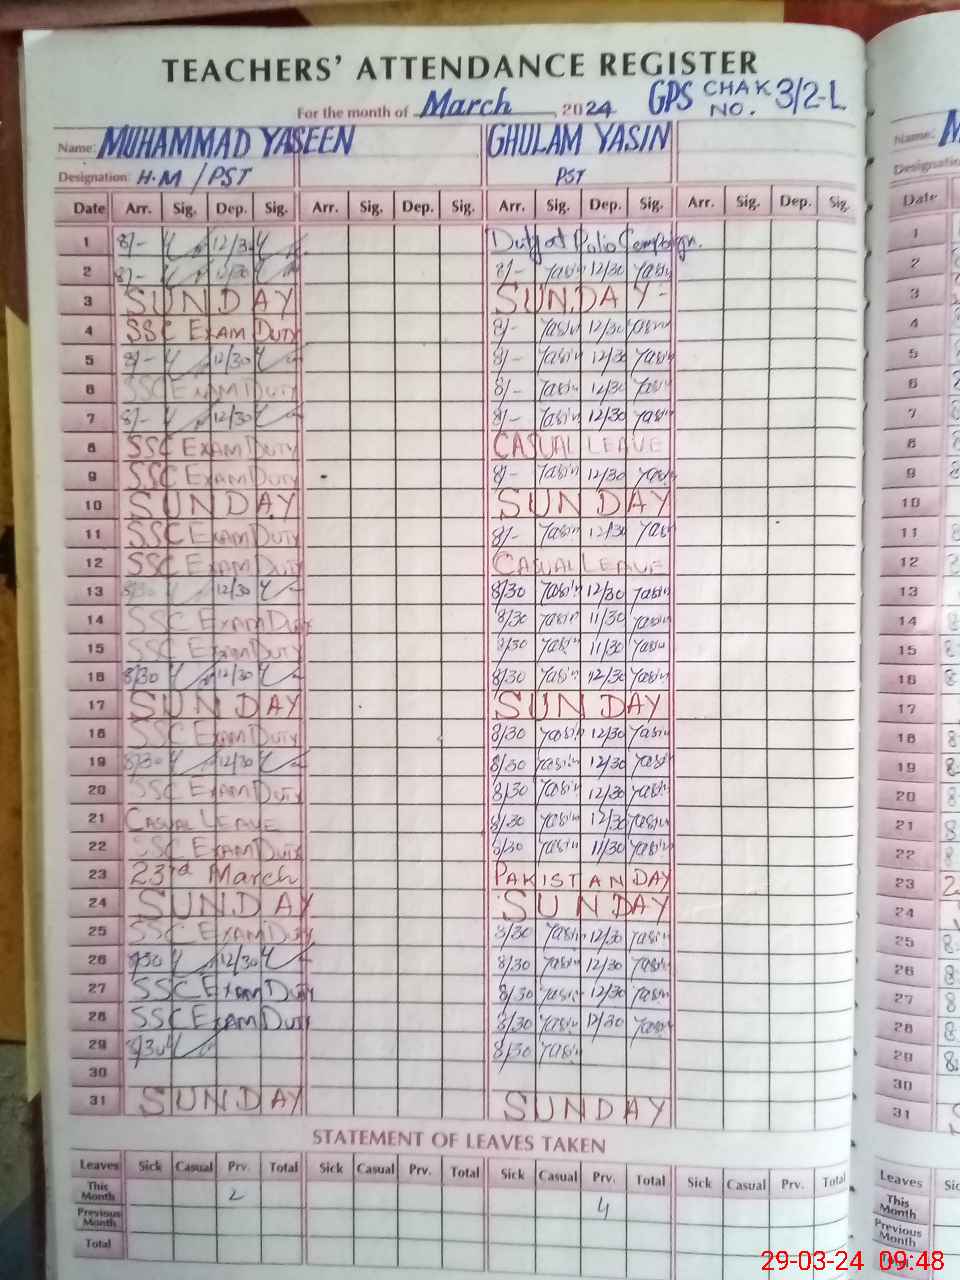 TEACHERS' ATTENDANCE REGISTER
For the month of March 2024 GPS CHAK NO. 3/2-L
Name: MUHAMMAD YASEEN GHULAM YASIN
Designation: H.M / PST PST
Date Arr. Sig. Dep. Sig. Arr. Sig. Dep. Sig. Arr. Sig. Dep. Sig. Arr. Sig. Dep. Sig.
1 8/- 12/30 Duty at Polio Campaign.
2 8/- 12/30 8/- Yasin 12/30 Yasin
3 SUNDAY SUNDAY
4 SSC Exam Duty 8/- Yasin 12/30 Yasin
5 8/- 12/30 8/- Yasin 12/30 Yasin
6 SSC Exam Duty 8/- Yasin 12/30 Yasin
7 8/- 12/30 8/- Yasin 12/30 Yasin
8 SSC Exam Duty CASUAL LEAVE
9 SSC Exam Duty 8/- Yasin 12/30 Yasin
10 SUNDAY SUNDAY
11 SSC Exam Duty 8/- Yasin 12/30 Yasin
12 SSC Exam Duty CASUAL LEAVE
13 8/30 12/30 8/30 Yasin 12/30 Yasin
14 SSC Exam Duty 8/30 Yasin 11/30 Yasin
15 SSC Exam Duty 8/30 Yasin 11/30 Yasin
16 8/30 12/30 8/30 Yasin 12/30 Yasin
17 SUNDAY SUNDAY
18 SSC Exam Duty 8/30 Yasin 12/30 Yasin
19 8/30 12/30 8/30 Yasin 12/30 Yasin
20 SSC Exam Duty 8/30 Yasin 12/30 Yasin
21 Casual Leave 8/30 Yasin 12/30 Yasin
22 SSC Exam Duty 8/30 Yasin 11/30 Yasin
23 23rd March PAKISTAN DAY
24 SUNDAY SUNDAY
25 SSC Exam Duty 8/30 Yasin 12/30 Yasin
26 8/30 12/30 8/30 Yasin 12/30 Yasin
27 SSC Exam Duty 8/30 Yasin 12/30 Yasin
28 SSC Exam Duty 8/30 Yasin 12/30 Yasin
29 8/30 8/30 Yasin
30
31 SUNDAY SUNDAY
STATEMENT OF LEAVES TAKEN
Leaves Sick Casual Prv. Total Sick Casual Prv. Total Sick Casual Prv. Total Sick Casual Prv. Total
This Month 2 4
Previous Month
Total
Name:
Date
1
2
3
4
5
6
7
8
9
10
11
12
13
14
15
16
17
18
19
20
21
22
23
24
25
26
27
28
29
30
31
Leaves
This Month
Previous Month
29-03-24 09:48